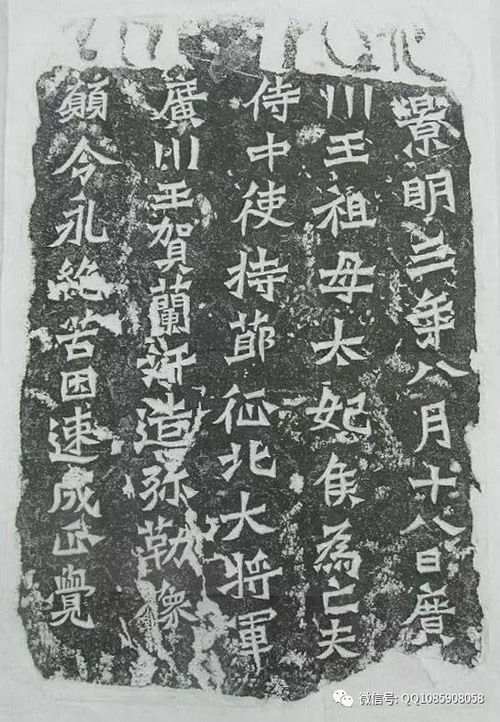 景明三年八月十八日廣
川王祖母太妃侯為亡夫
侍中使持莭征北大将軍
廣川王賀蘭汗造弥勒像
願令永絶苦因速成正覺
微信号: QQ1085908058